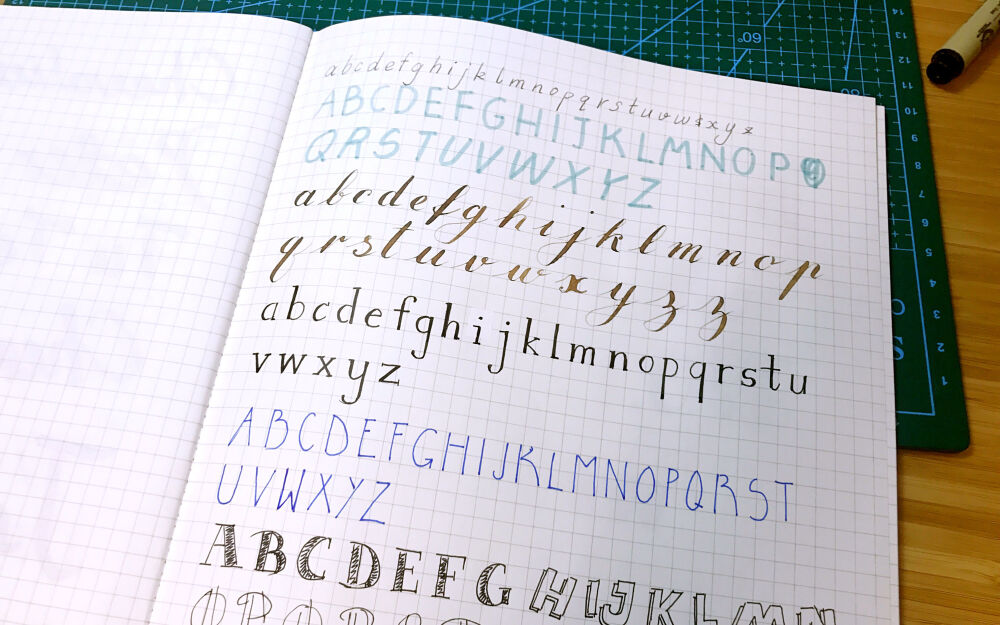 abcdefghijklmnopqrstuvwxyz
ABCDEFGHIJKLMNOP
QRSTUVWXYZ
abcdefghijklmnop
qrstuvwxyzz
abcdefghijklmnopqrstu
vwxyz
ABCDEFGHIJKLMNOPQRST
UVWXYZ
ABCDEFGHIJKLMN